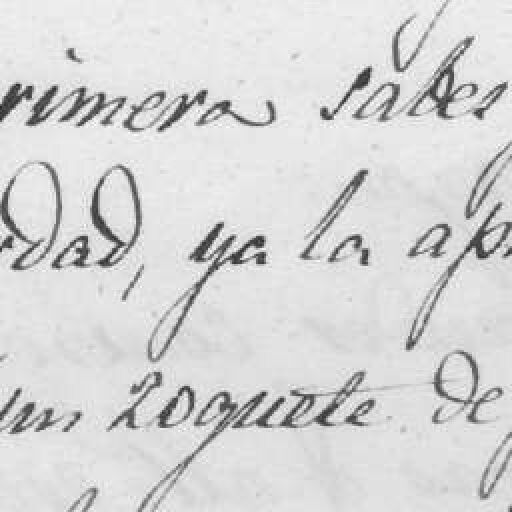 rimera sabes
rdad, ya la apr
un zoquete de